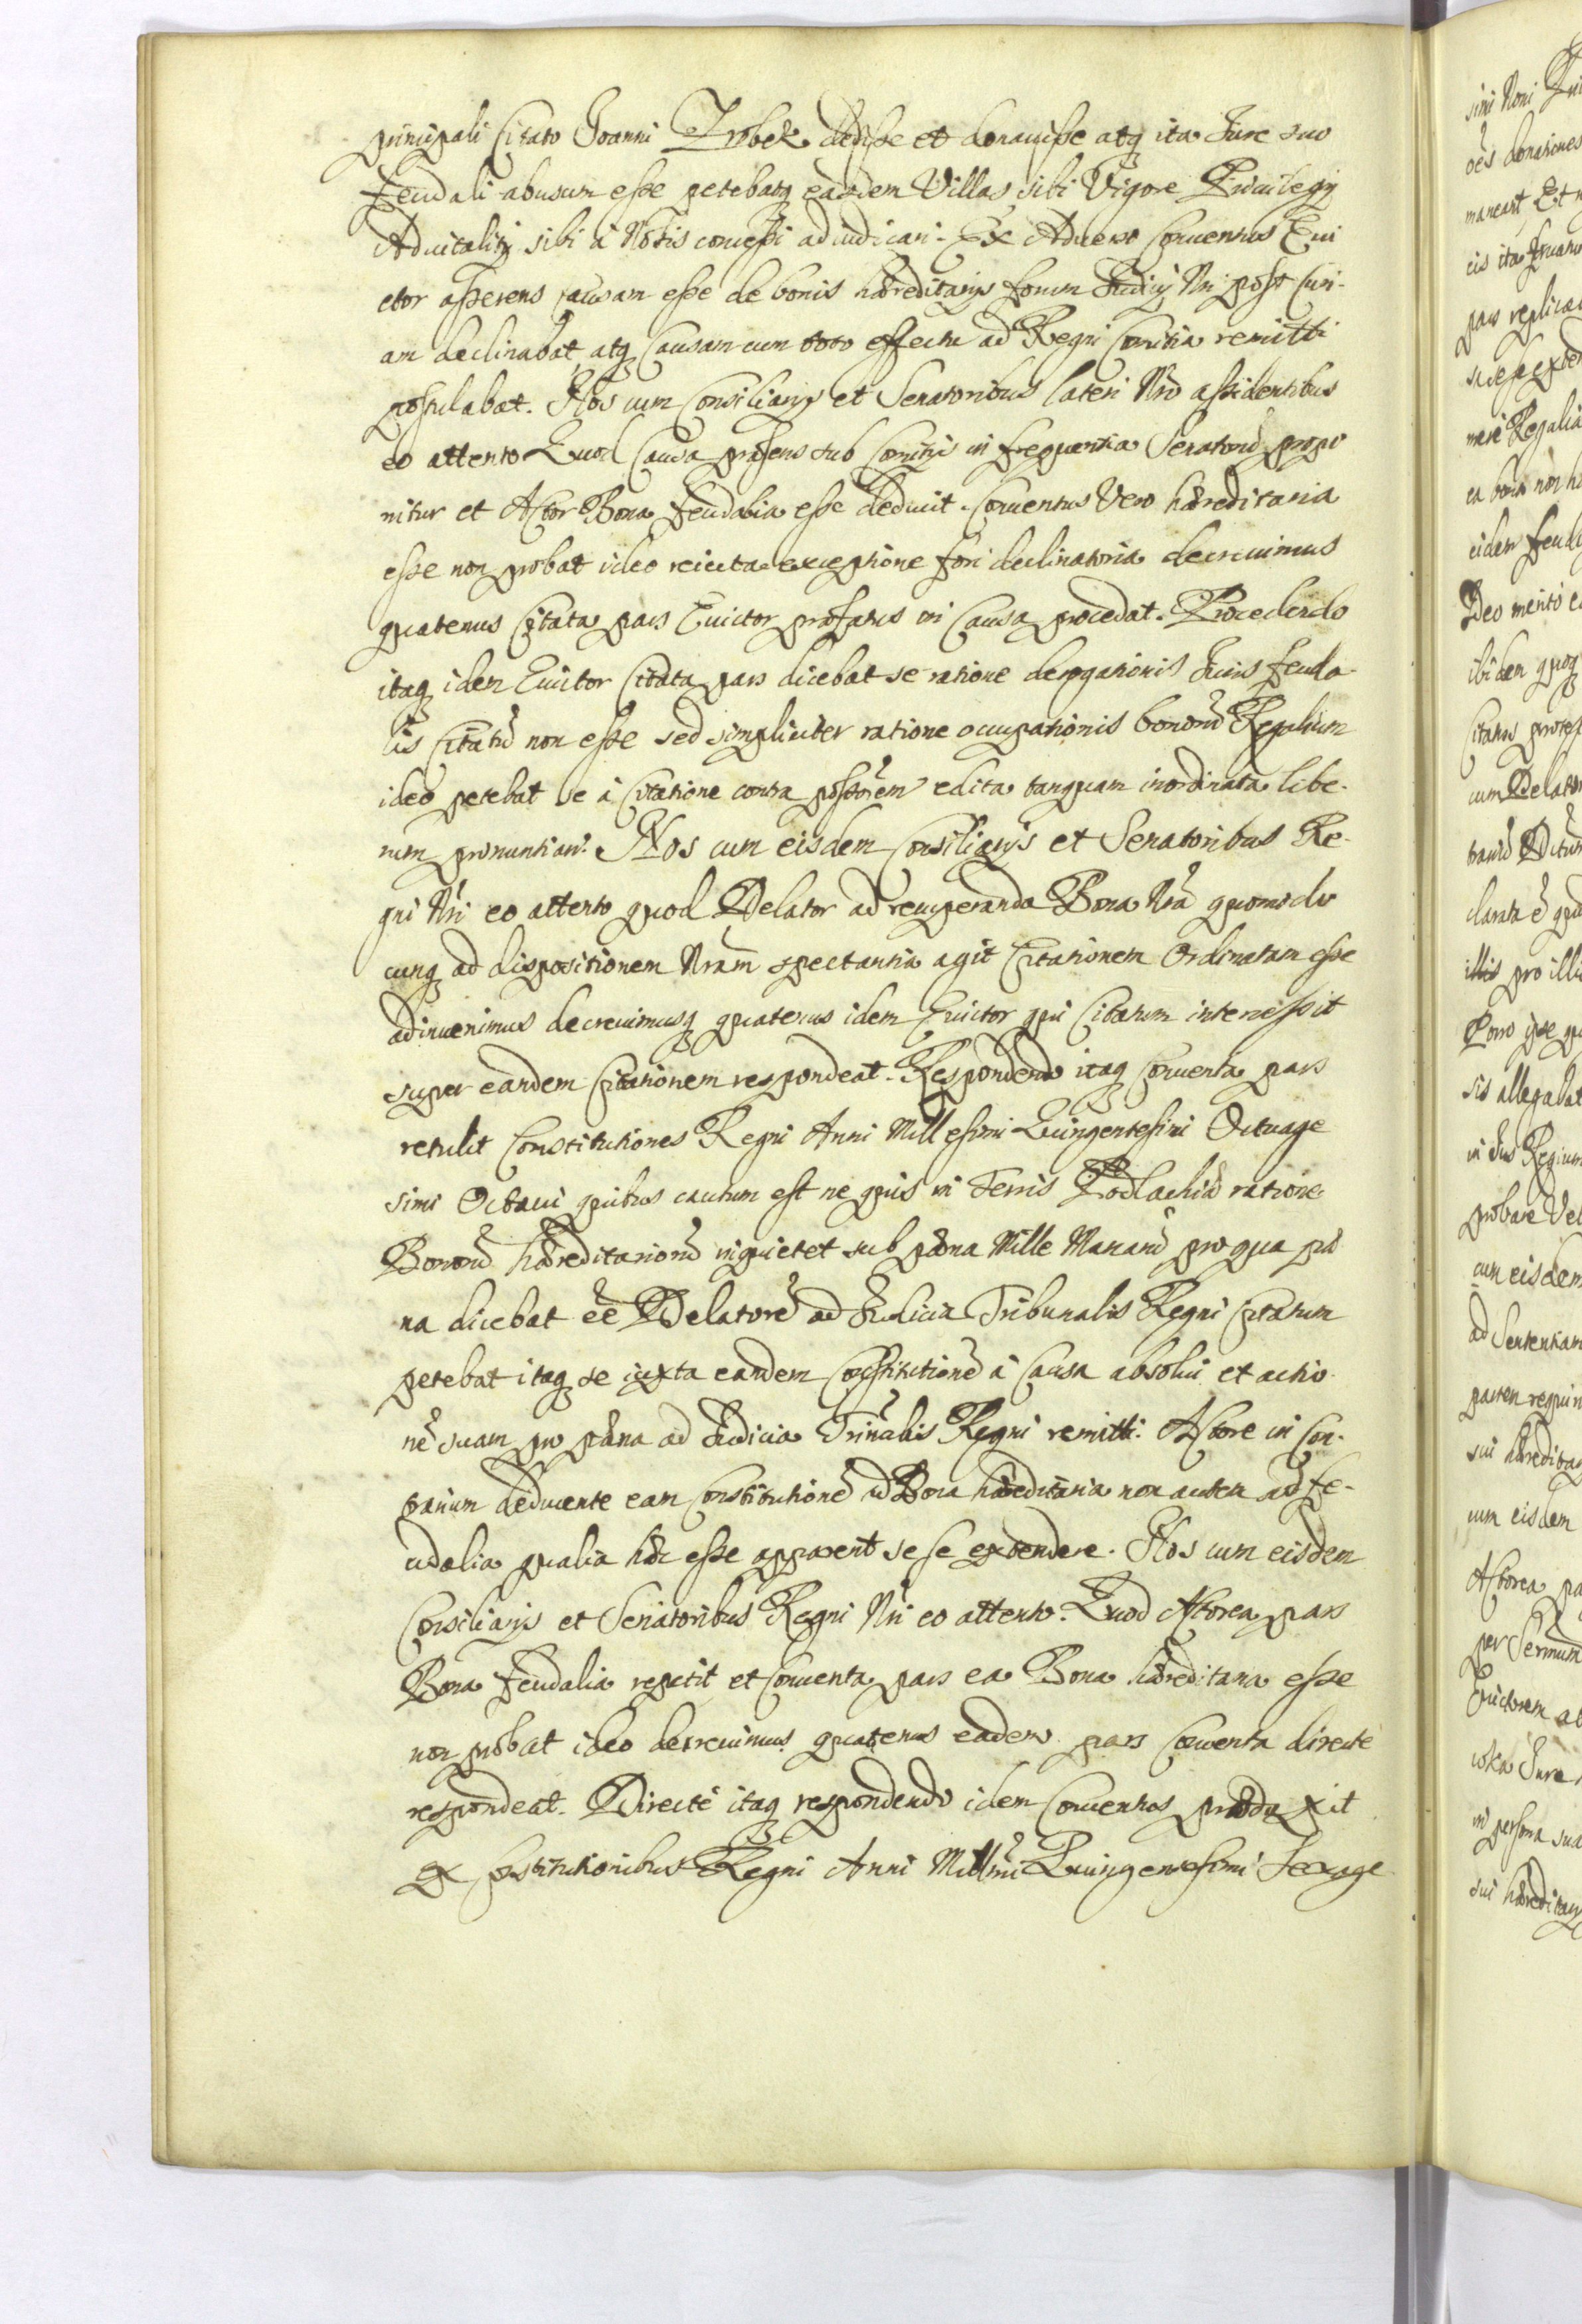 principali Citato Joanni Zrobek dedisse et donavisse atq ita Jure suo
feudali abusum esse petebatq easdem Villas sibi Vigore Priuilegij
Aduitalitij sibi à Nobis concessi adiudicari. Ex Aduerso Conuentus Eui
ctor asserens causam esse de bonis hæreditarijs forum Iudicij Nri post Curi-
am declinabat atq Causam cum toto effectu ad Regni Comitia remitti
postulabat. Nos cum Consiliarijs et Senatoribus lateri Nro assidentibus
eo attento Quod Causa præsens sub Comitijs in frequentia Senatorũ propo
nitur et Actor Bona feudalia esse deducit. Conuentus Vero hæreditaria
esse non probat ideo reiecta exceptione fori declinatoria decreuimus
quatenus Citata pars Euictor præfatus in Causa procedat. Procedendo
itaq idem Euictor Citata pars dicebat se ratione derogationis Iuris feuda-
lis Citatũ non esse sed simpliciter ratione occupationis bonorũ Regalium
ideo petebat se à Citatione contra possorem edita tanquam inordinata libe-
rum pronuntiari. Nos cum eisdem Consiliarijs et Senatoribus Re-
gni Nri eo attento quod Delator ad recuperanda Bona Nrã quomodo
cunq ad dispositionem Nram spectantia agit Citationem Ordinatam esse
adinuenimus decreuimusq quatenus idem Euictor qui Citatum interessit
super eandem Citationem respondeat. Respondendo itaq Conuenta pars
retulit Constitutiones Regni Anni Millesimi Quingentesimi Octuage
simi Octaui quibus cautum est ne quis in Terris Podlachiæ ratione
Bonorũ hæreditariorũ inquietet sub pæna Mille Marcarũ pro qua pæ
na dicebat eẽ Delatorẽ ad Iudicia Tribunalis Regni Citatum
petebat itaq se iuxta eandem Constitutionẽ à Causa absolui et actio-
nẽ suam pro pæna ad Iudicia Trinalis Regni remitti. Actore in Con-
trarium deducente eam Constitutionẽ ad Bona hæreditaria non autem ad fe-
udalia qualia hæc esse apparent se se extendere. Nos cum eisdem
Consiliarijs et Senatoribus Regni Nri eo attento. Quod Actorea pars
Bona feudalia repetit et Conuenta pars ea Bona hæreditaria esse
non probat ideo decreuimus quatenus eadem pars Conuenta directè
respondeat. Directè itaq respondendo idem Conuentus produxit
ex Constitutionibus Regni Anni Millmi Quingentesimi Sexage